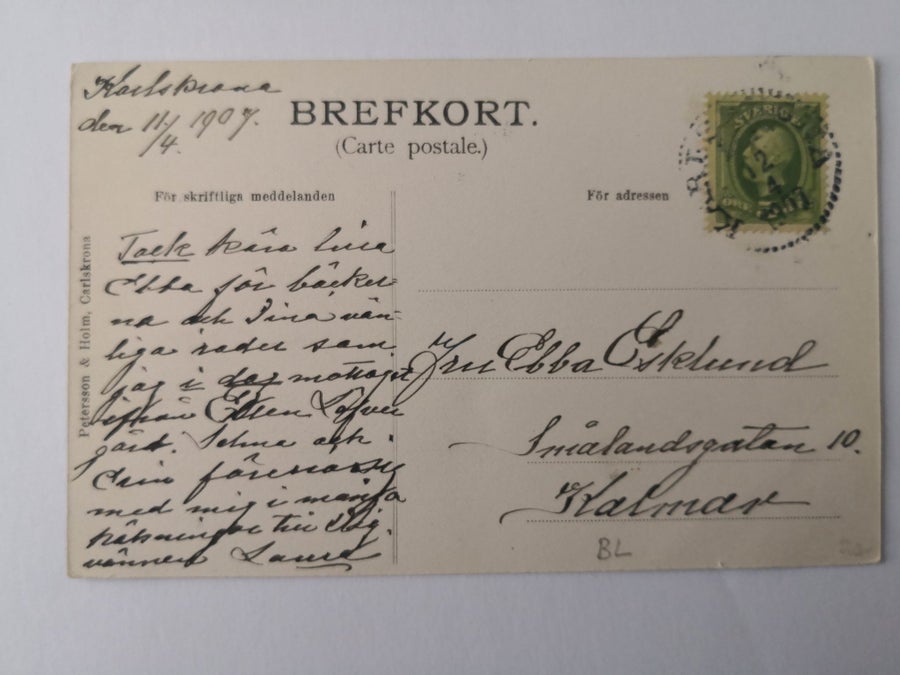 Karlskrona
den 11/4. 1907.
BREFKORT.
(Carte postale.)
För skriftliga meddelanden
För adressen
SVERIGE
Petersson & Holm, Carlskrona
Tack kära lina
Ebba för böcker-
na och Dina vän-
liga rader som
jag i dag mottagit
ifrån Ellen
Selma och
förenar sig
med mig i många
hälsningar till Dig.
vännen Laura
Fru Ebba Esklund
Smålandsgatan 10.
Kalmar
BL